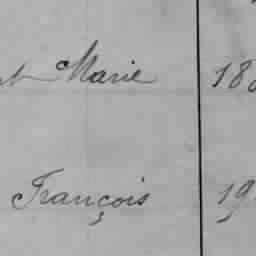 Marie 18
François 19